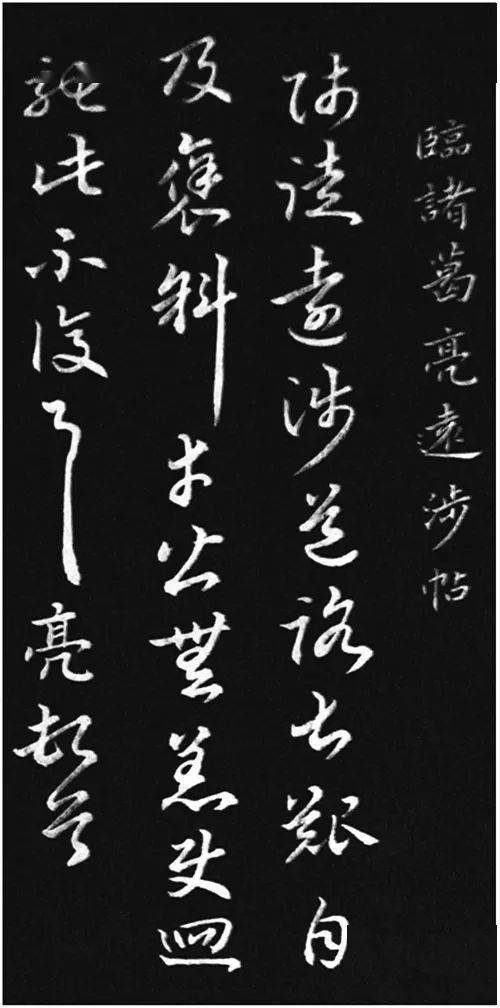 臨諸葛亮遠涉帖
師徒遠涉道路甚艱自
及褒斜幸皆無恙使迴
馳此不復亮頓首